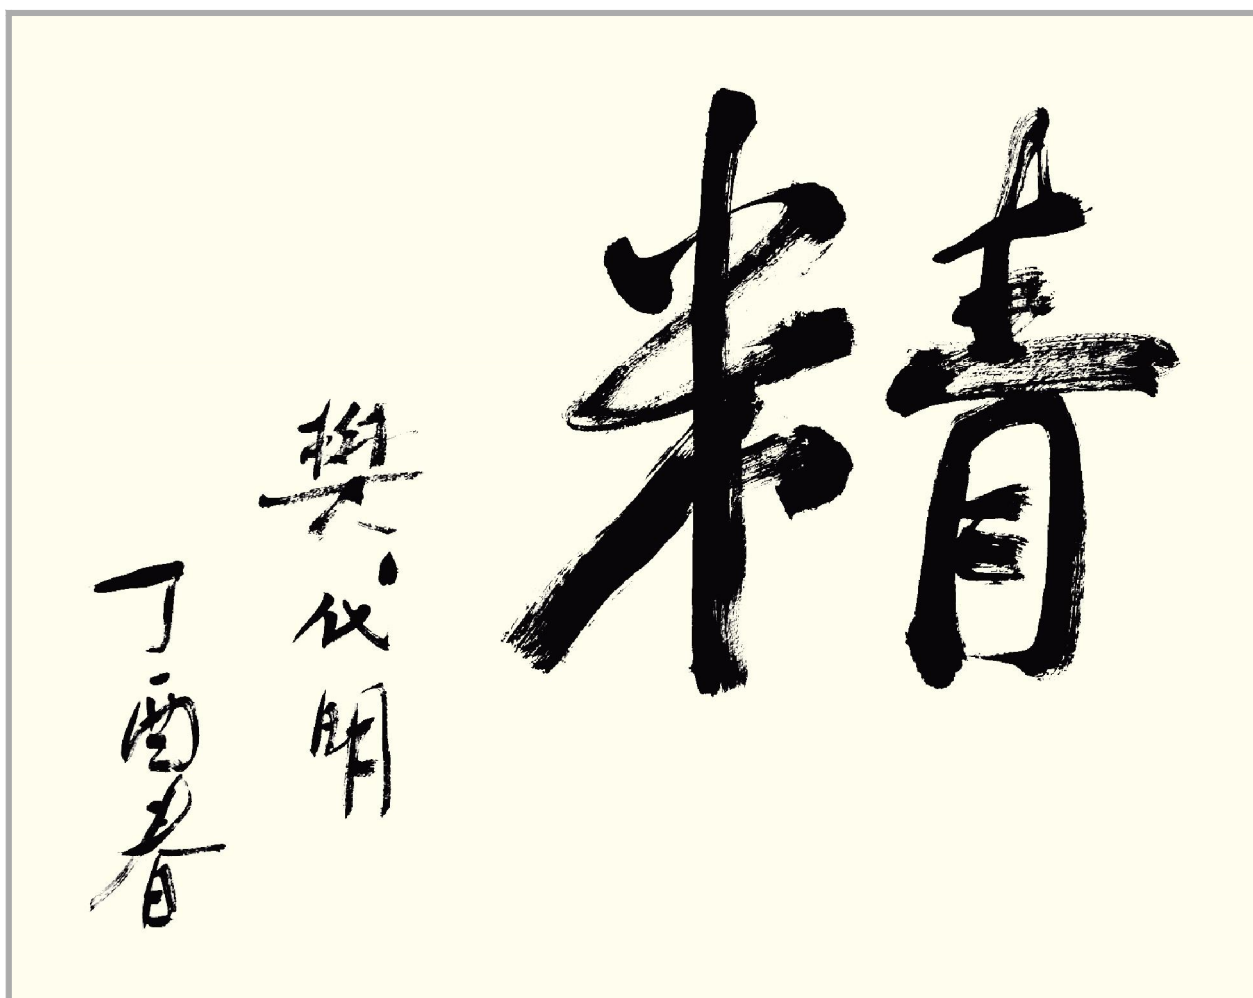 精
樊代明
丁酉春